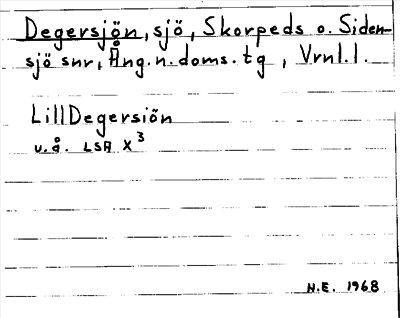 Degersjön, sjö, Skorpeds o. Siden-
sjö snr, Ång. n. doms. tg , Vrnl.l.
LillDegersiön
u.å. LSA X³
H.E. 1968